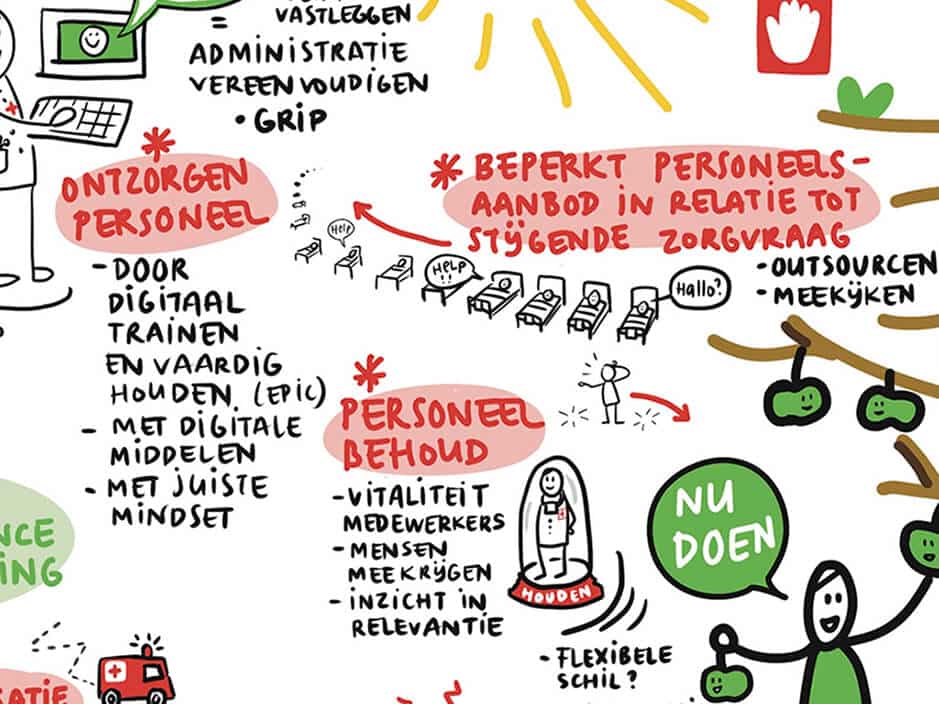 VASTLEGGEN
=
ADMINISTRATIE
VEREENVOUDIGEN
• GRIP
* ONTZORGEN
PERSONEEL
- DOOR
DIGITAAL
TRAINEN
EN VAARDIG
HOUDEN (EPIC)
- MET DIGITALE
MIDDELEN
- MET JUISTE
MINDSET
* BEPERKT PERSONEELS-
AANBOD IN RELATIE TOT
STIJGENDE ZORGVRAAG
- OUTSOURCEN
- MEEKIJKEN
Help
HELP!!
Hallo?
* PERSONEEL
BEHOUD
- VITALITEIT
MEDEWERKERS
- MENSEN
MEEKRIJGEN
- INZICHT IN
RELEVANTIE
HOUDEN
- FLEXIBELE
SCHIL?
NU
DOEN